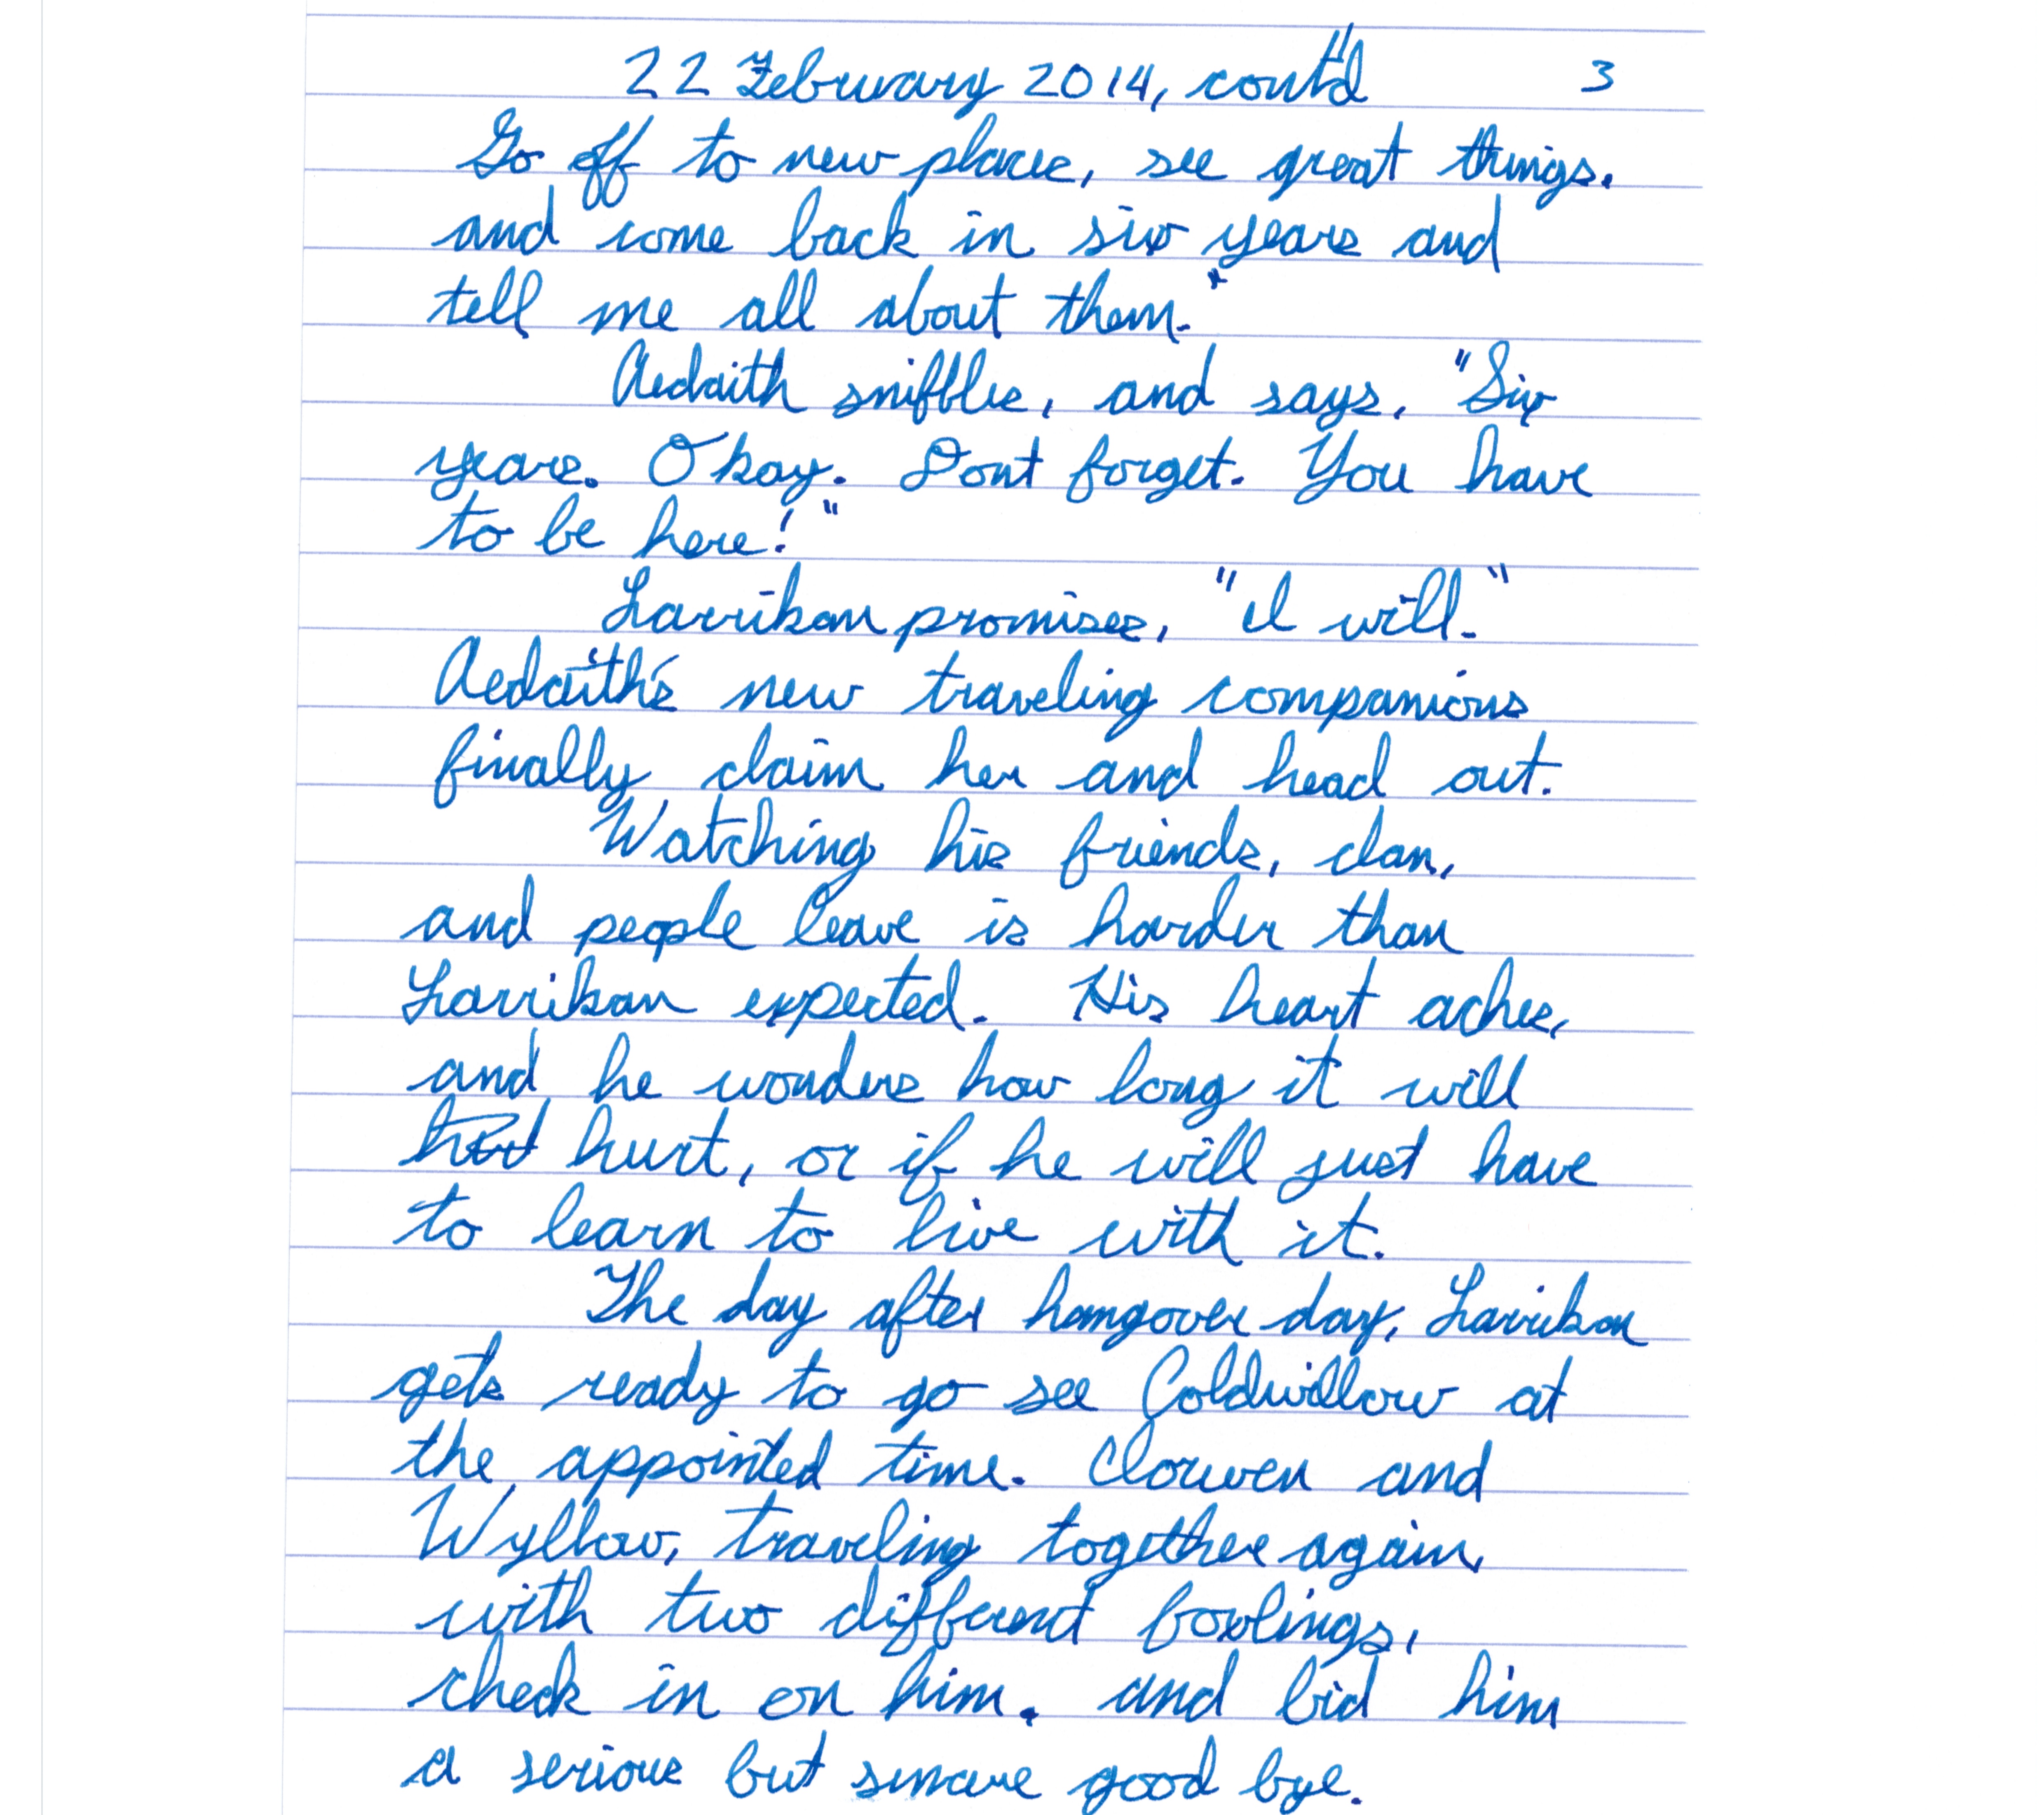 22 February 2014, cont'd 3
Go off to new places, see great things.
and come back in six years and
tell me all about them."
Aedaith sniffles, and says, "Six
years. Okay. Dont forget. You have
to be here!"
Larrikan promises, "I will."
Aedaith's new traveling companions
finally claim her and head out.
Watching his friends, clan,
and people leave is harder than
Larrikan expected. His heart aches,
and he wonders how long it will
hurt, or if he will just have
to learn to live with it.
The day after hangover day, Larrikan
gets ready to go see Coldwillow at
the appointed time. Clouven and
Wyllow, traveling together again,
with two different foxlings,
check in on him. and bid him
a serious but sincere good bye.